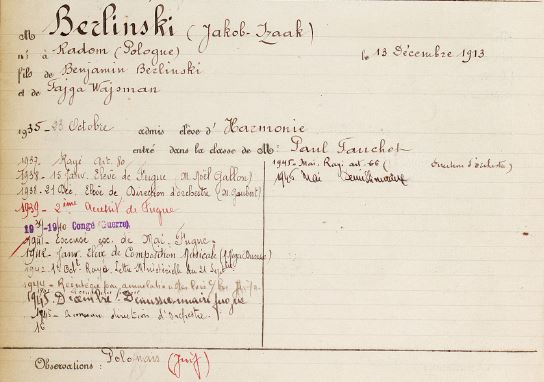 M Berlinski (Jakob-Izaak)
né à Radom (Pologne) le 13 Décembre 1913
fils de Benjamin Berlinski
et de Fajga Wajsman
1935 - 23 Octobre admis élève d'Harmonie
entré dans la classe de M. Paul Fauchet
1937 Rayé Art. 80
1938 - 15 Janv. Elève de Fugue (M. Noël Gallon)
1938 - 21 Déc. Elève de Direction d'orchestre (M. Gaubert)
1939 - 2ème Accessit de Fugue
1939-1940 Congé (Guerre)
1941 - Excusé ex. de Mai. Fugue
Janv. Elève de Composition Musicale
1942 1er Oct. Rayé. Lettre Ministérielle du 21 Sept
1944 - Réintégré par annulation des lois
1945 Décembre
direction d'orchestre
1945 - Mai. Rayé art. 66 (Direction d'orchestre)
1946 Mai
Observations : Polonais (Juif)